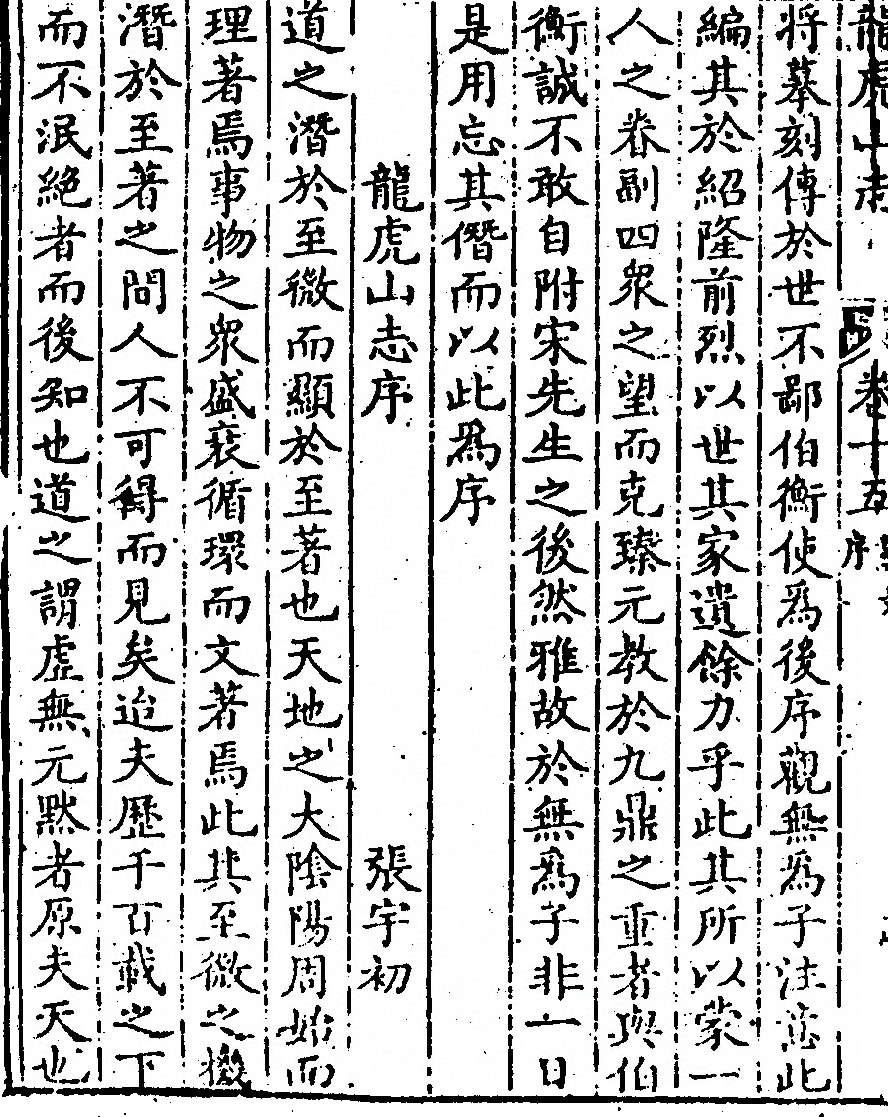 龍虎山志 卷十五 序
將摹刻傳於世不鄙伯衡使爲後序觀無爲子注意此
編其於紹隆前烈以世其家遺餘力乎此其所以蒙一
人之眷副四衆之望而克臻元教於九鼎之重者與伯
衡誠不敢自附宋先生之後然雅故於無爲子非一日
是用忘其僭而以此爲序
龍虎山志序 張宇初
道之潛於至微而顯於至著也天地之大陰陽周始而
理著焉事物之衆盛衰循環而文著焉此其至微之機
潛於至著之間人不可得而見矣迨夫歷千百載之下
而不泯絶者而後知也道之謂虛無元默者原夫天也